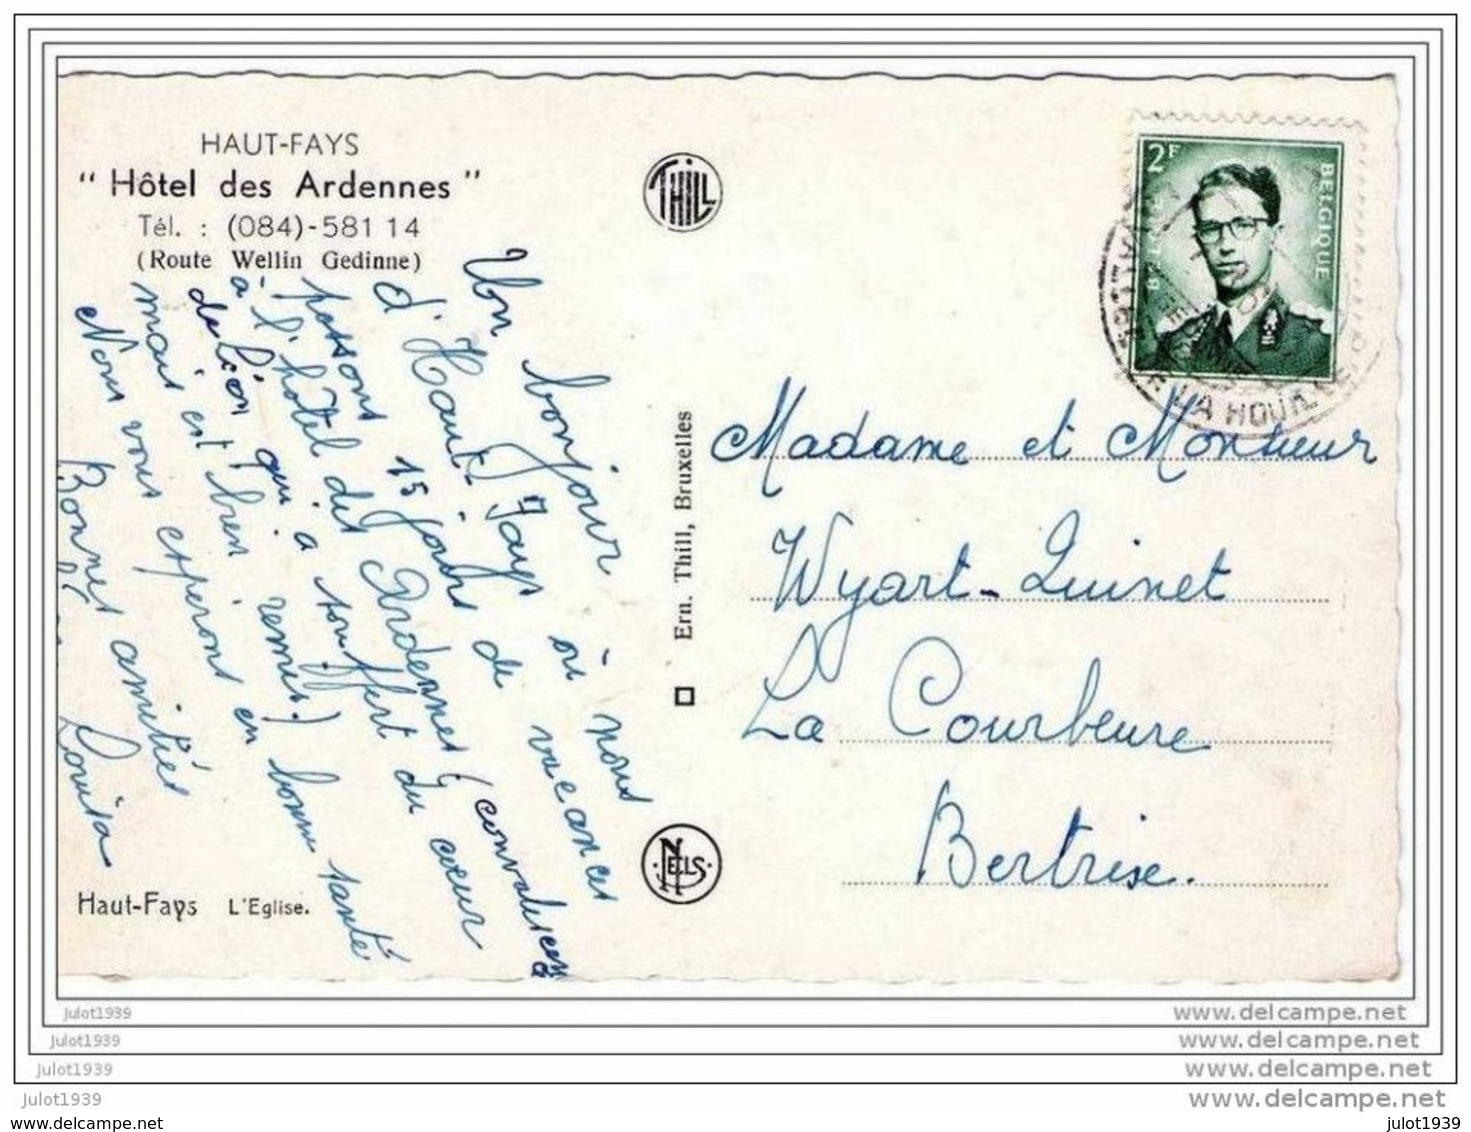 HAUT-FAYS
" Hôtel des Ardennes "
Tél. : (084)-581 14
(Route Wellin Gedinne)
THILL
2F
BELGIQUE
LA HOUILLE
Un bonjour
d'Haut Fays où nous
passons 15 jours de vacances
à l'hôtel des Ardennes (convalescence
de Léon qui a souffert du cœur
mais est bien remis) bonne santé
Nous vous espérons en
Bonnes amitiés
Louisa
Ern. Thill, Bruxelles
NELS
Madame et Monsieur
Wyart-Quinet
La Courbeure
Bertrix.
Haut-Fays L'Eglise.
julot1939 www.delcampe.net
julot1939 www.delcampe.net
julot1939 www.delcampe.net
julot1939 www.delcampe.net
www.delcampe.net julot1939